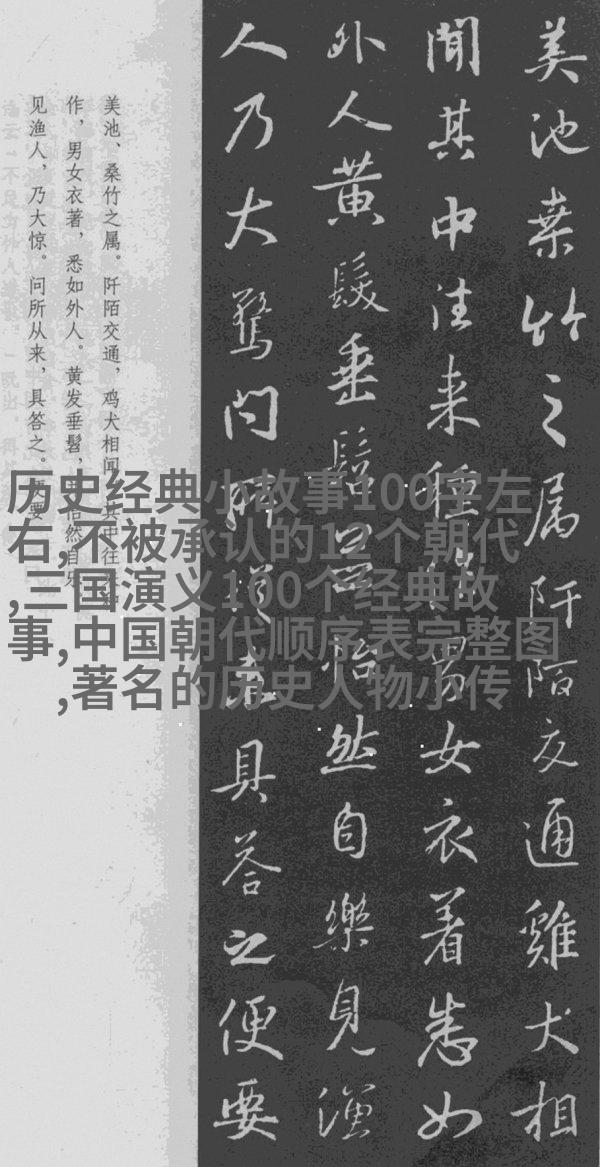 美池桒竹之属阡陌交通雞犬相
聞其中往来種作男女衣着悉如
外人黄髮垂髫並怡然自樂見漁
人乃大驚問所從来具荅之便要
美池、桑竹之属。阡陌交通，鸡犬相闻。其中往来种
作，男女衣著，悉如外人。黄发垂髫，并怡然自乐。
见渔人，乃大惊。问所从来，具答之。便要
历史经典小故事100字左
右,不被承认的12个朝代
,三国演义100个经典故
事,中国朝代顺序表完整图
,著名的历史人物小传